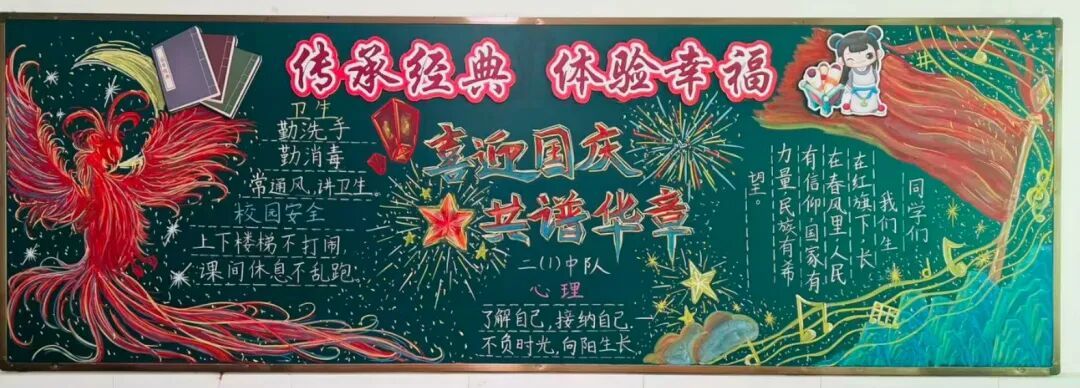 传承经典 体验幸福
卫生
勤洗手
勤消毒
常通风,讲卫生。
校园安全
上下楼梯不打闹
课间休息不乱跑。
喜迎国庆
共谱华章
二(1)中队
心理
了解自己,接纳自己
不负时光,向阳生长
同学们
我们生
在红旗下,长
在春风里,人民
有信仰,国家有
力量民族有希
望。